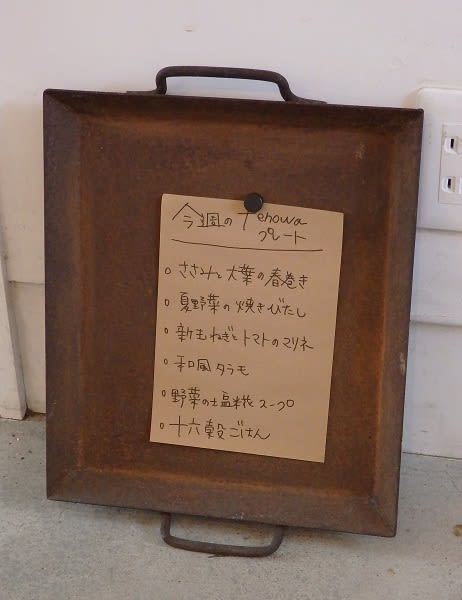 今週のTenowa
プレート
○ ささみと大葉の春巻き
○ 夏野菜の焼きびたし
○ 新玉ねぎとトマトのマリネ
○ 和風タラモ
○ 野菜の塩糀スープ
○ 十六穀ごはん